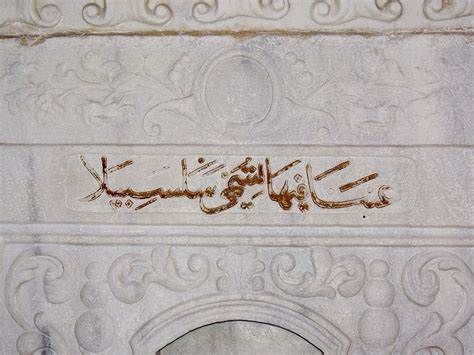 عينا فيها تسمى سلسبيلا